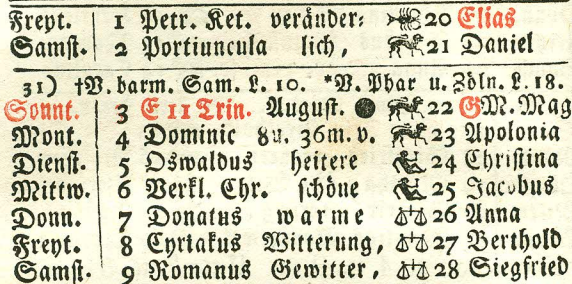 Freyt. 1 Petr. Ket. veränder: 20 Elias
Samst. 2 Portiuncula lich, 21 Daniel
31) †V. barm. Sam. L. 10. *V. Phar u. Zöln. L. 18.
Sonnt. 3 E 11 Trin. August. ● 22 G M. Mag
Mont. 4 Dominic 8 u. 36 m. v. 23 Apolonia
Dienst. 5 Oswaldus heitere 24 Christina
Mittw. 6 Verkl. Chr. schöne 25 Jacobus
Donn. 7 Donatus warme ♎ 26 Anna
Freyt. 8 Cyriakus Witterung, ♎ 27 Berthold
Samst. 9 Romanus Gewitter, ♎ 28 Siegfried